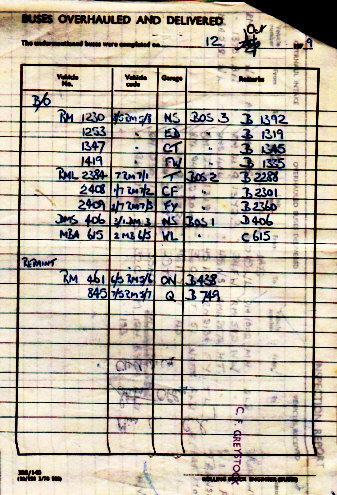 BUSES OVERHAULED AND DELIVERED
The undermentioned buses were completed on 12 Oct No. 9
Vehicle No. Vehicle code Garage Remarks
B/6
RM 1230 4/5RM5/8 NS BOS 3 B 1392
1253 " ED " B 1319
1347 " CT " B 1345
1419 " FW " B 1335
RML 2384 7RM7/1 T BOS 2 B 2288
2408 1/7RM7/2 CF " B 2301
2409 1/7RM7/3 FY " B 2360
DMS 406 2/1DM 3 NS BOS 1 D 406
MBA 615 2MB 6/5 WL " C 615
REPAINT
RM 461 6/5RM5/6 ON B 438
845 7/5RM5/7 Q B 749
C. F. GREYSTOCK
ROLLING STOCK ENGINEER (BUSES)